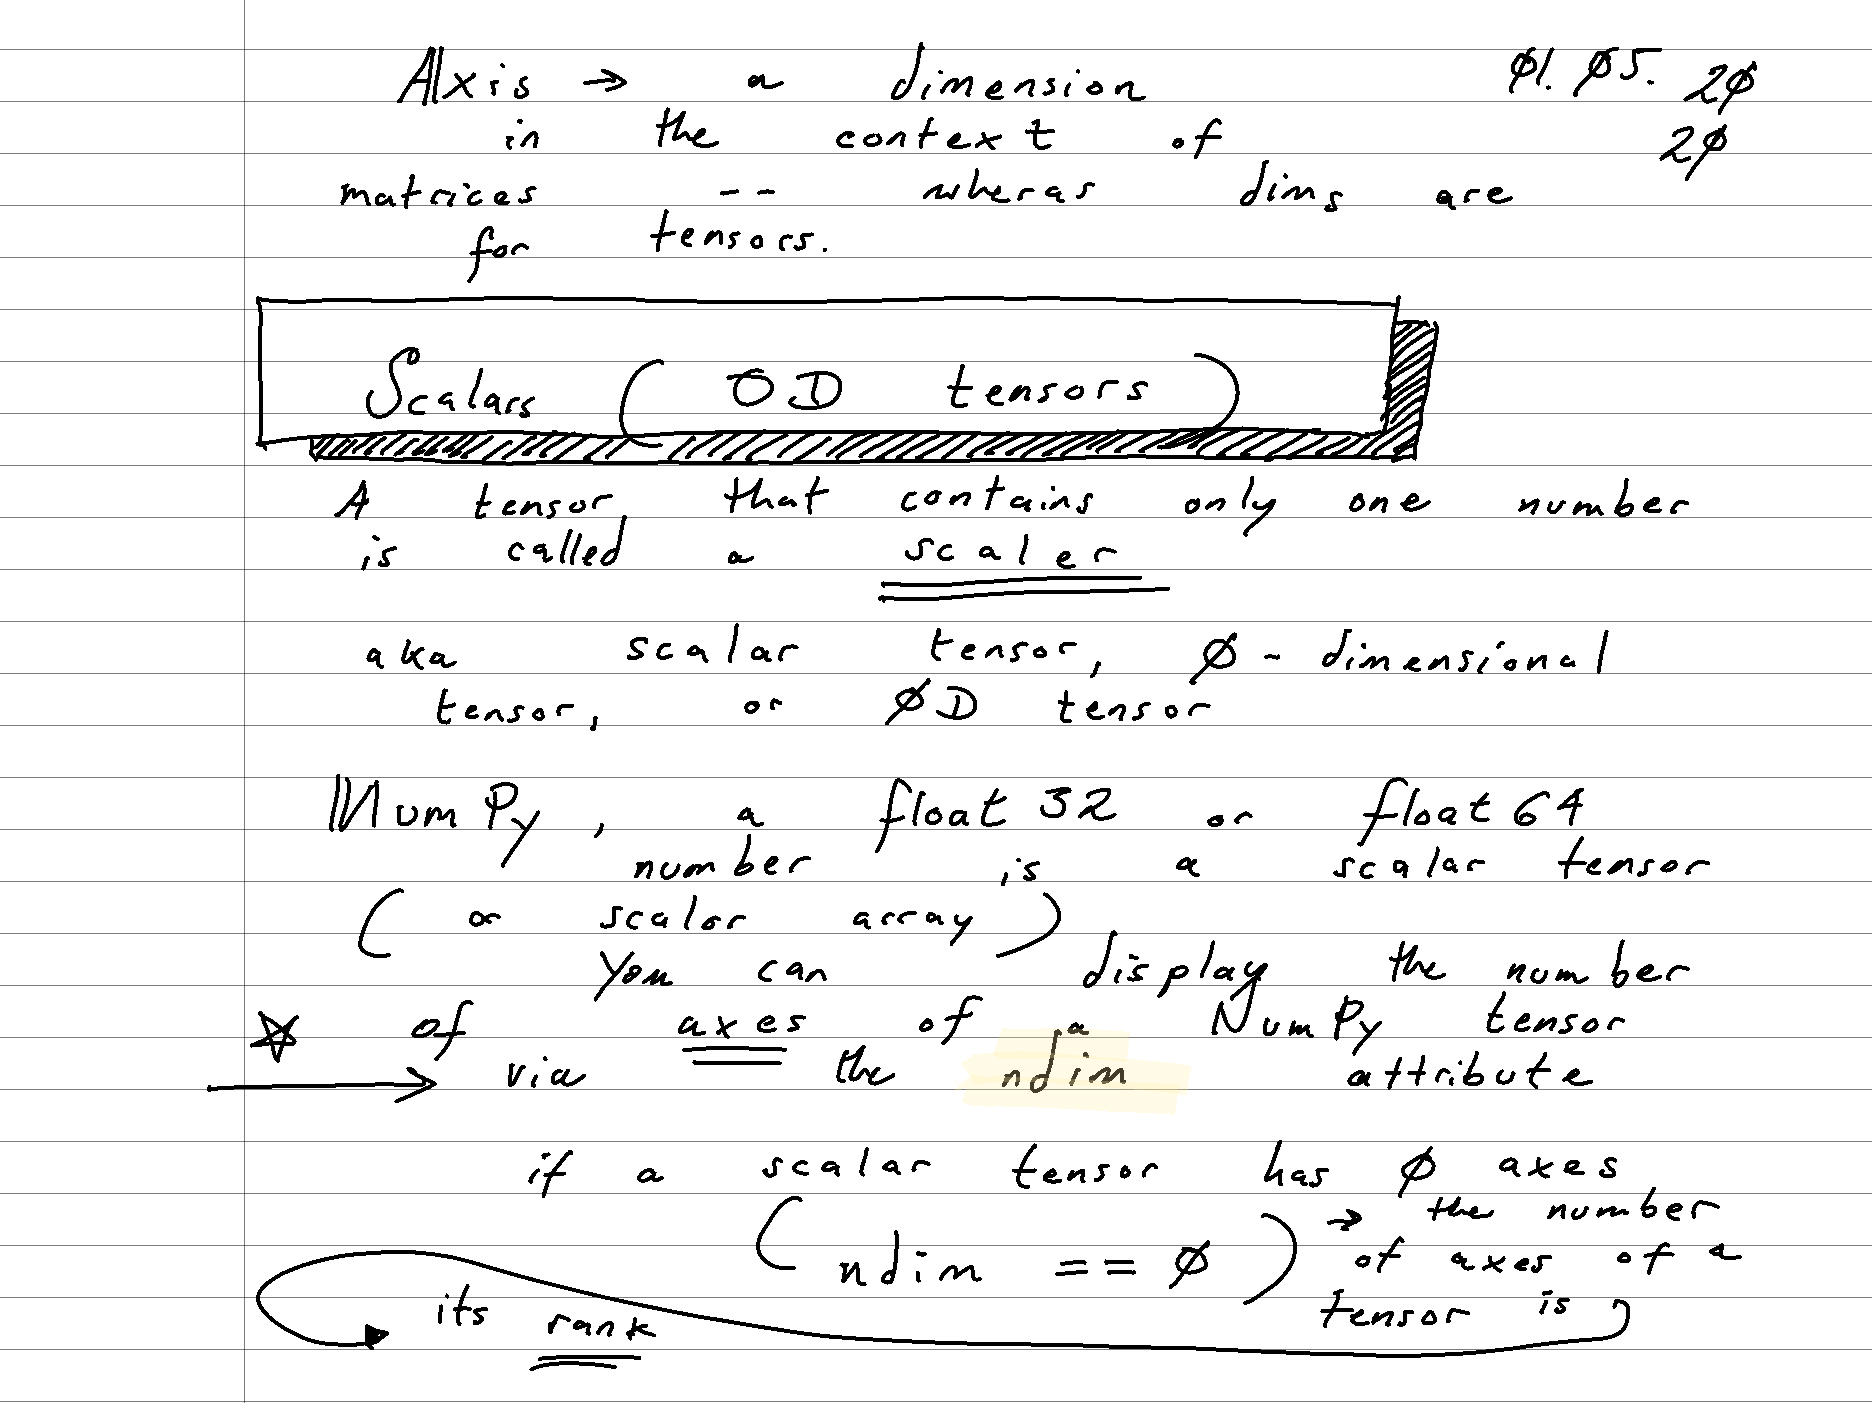 Axis → a dimension
01.05.20
20
in the context of
matrices -- wheras dims are
for tensors.
Scalars (OD tensors)
A tensor that contains only one number
is called a scaler
aka scalar tensor, Ø-dimensional
tensor, or ØD tensor
NumPy, a float32 or float64
number is a scalar tensor
(or scalar array)
You can display the number
of axes of a NumPy tensor
via the ndim attribute
if a scalar tensor has Ø axes
(ndim == Ø)
→ the number
of axes of a
tensor is
its rank